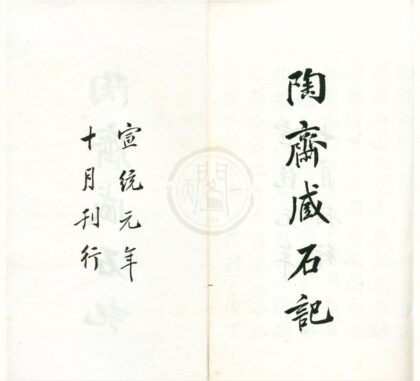 陶齋臧石記
宣統元年
十月刊行